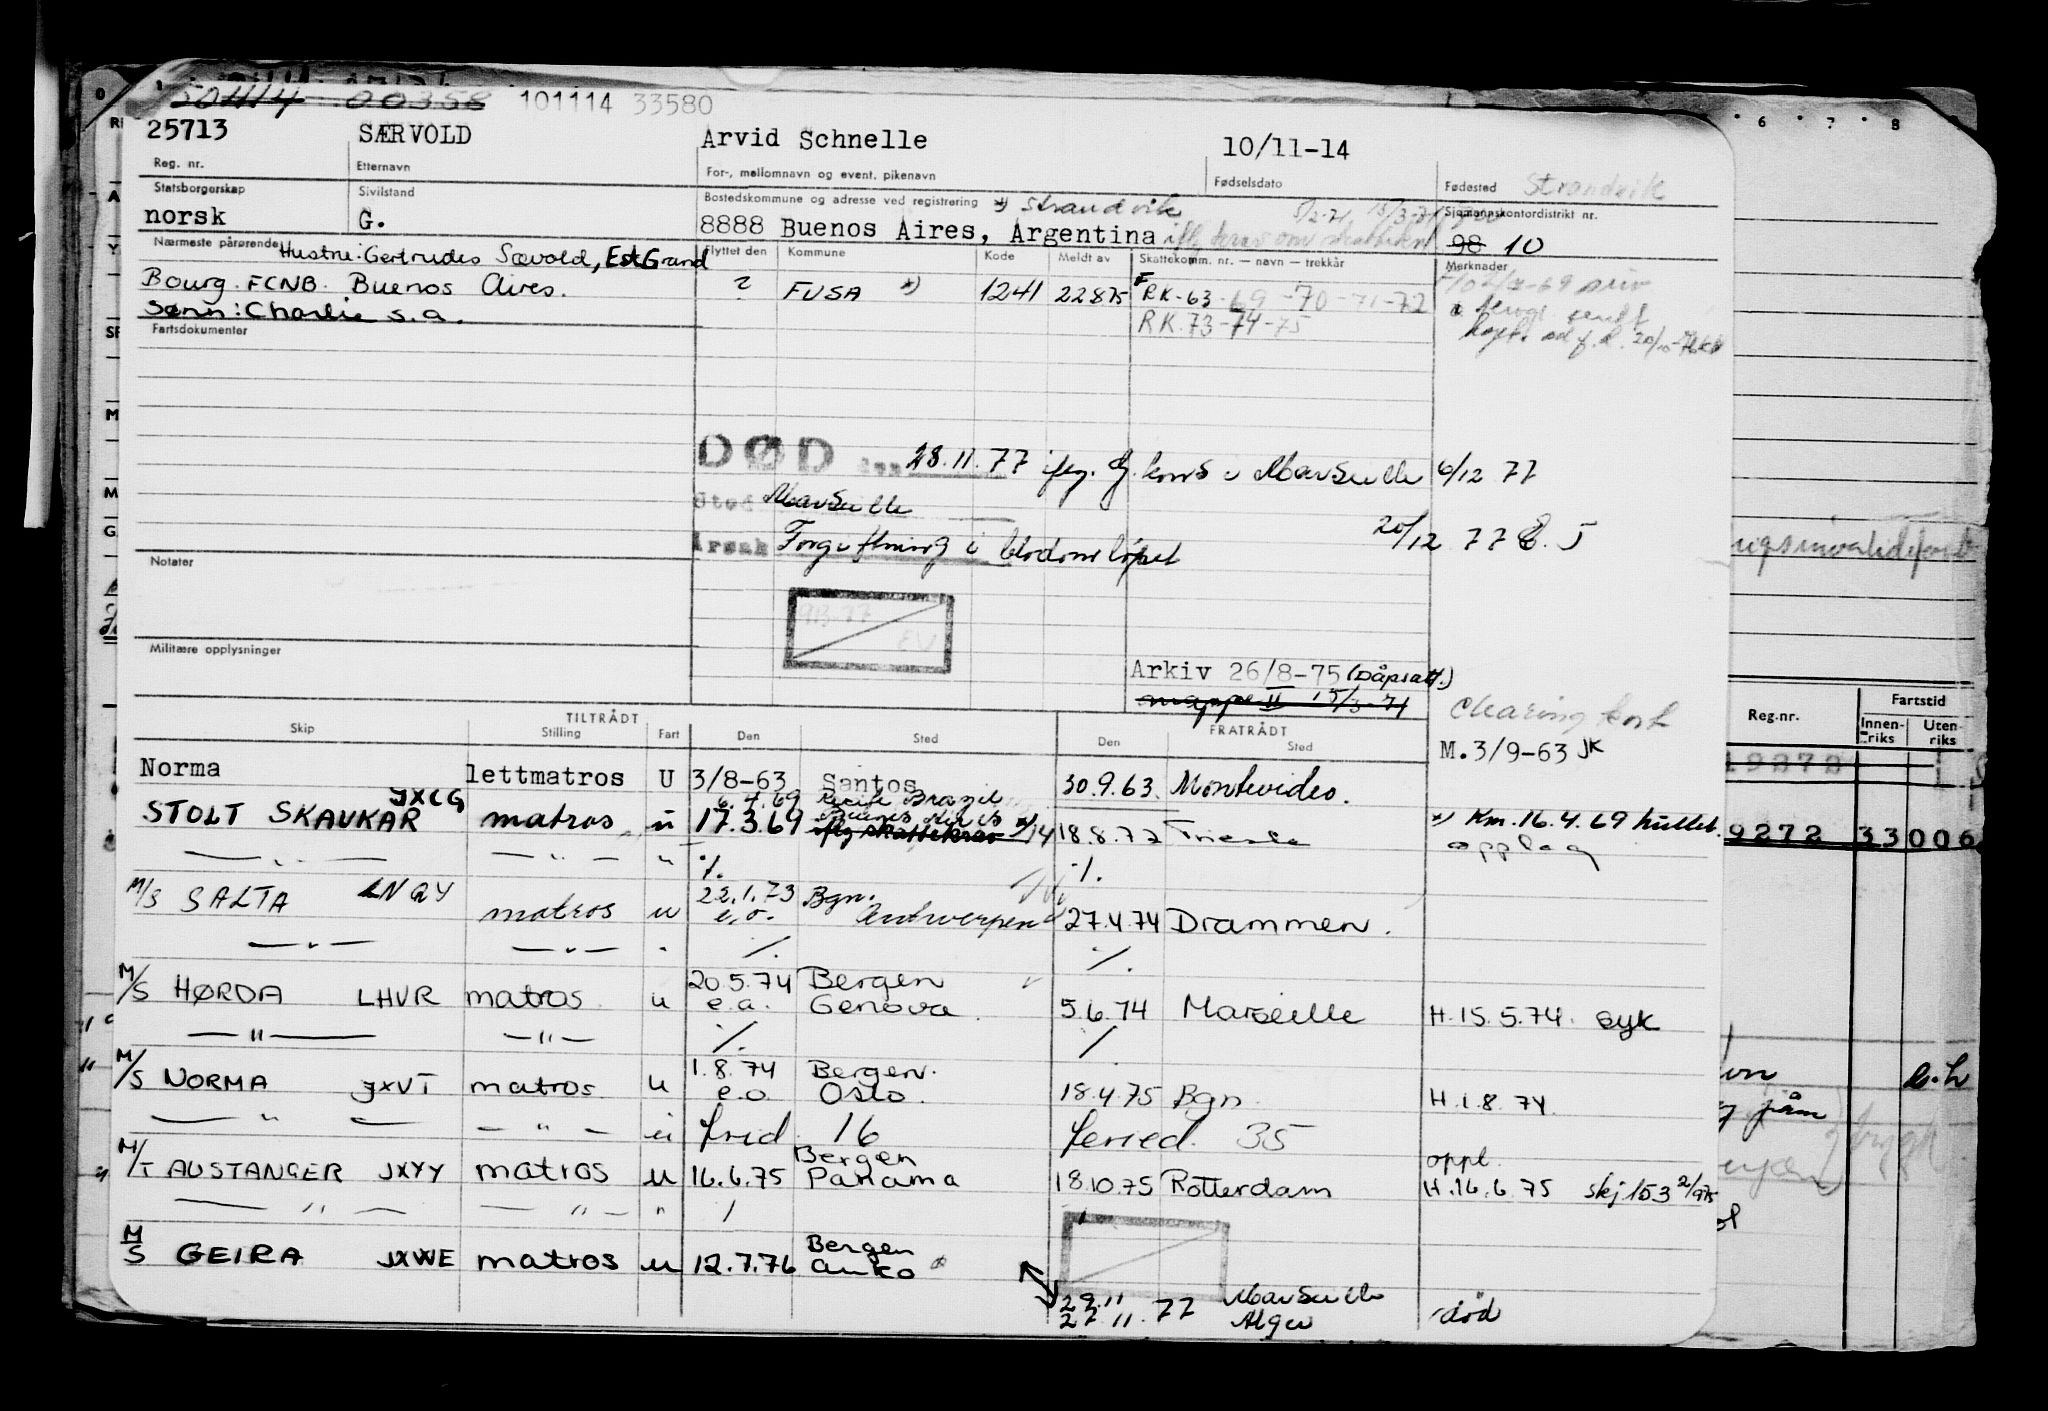 50414 00358 101114 33580
25713 SÆRVOLD Arvid Schnelle 10/11-14
Reg. nr. Etternavn For-, mellomnavn og event. pikenavn Fødselsdato Fødested Strandvik
Statsborgerskap Sivilstand Bostedskommune og adresse ved registrering *) Strandvik Sjømannskontordistrikt nr.
norsk G. 8888 Buenos Aires, Argentina 98 10
Nærmeste pårørende Hustru: Gertrudes Sævold, Est Grand Flyttet den Kommune Kode Meldt av Skattekomm. nr. — navn — trekkår Merknader
Bourg. FCNB. Buenos Aires. ? FUSA *) 1241 22875 F RK-63-69-70-71-72
Sønn: Charlie s.a. RK.73-74-75
Fartsdokumenter
DØD den 28.11.77 Marseille 6/12 77
Sted Marseille
Årsak Forgiftning i blodomløpet 20/12 77
Notater
Militære opplysninger
Arkiv 26/8-75 (Dåpsatt.)
mappe II 15/3-71
Clearing kort
TILTRÅDT FRATRÅDT
Skip Stilling Fart Den Sted Den Sted
M.3/9-63 JK
Norma lettmatros U 3/8-63 Santos 30.9.63. Montevideo.
6.4.69 Recife Brazil
STOLT SKAUKAR JXCG matros u 17.3.69 Buenos Aires 18.8.72 Trieste *) Km.16.4.69 hullet.
— " — — " — " ./. ./. opplag
M/S SALTA LNQY matros u 22.1.73 e.o. Bgn. Antwerpen 27.4.74 Drammen.
— " — — " — " ./. ./.
M/S HØRDA LHVR matros u 20.5.74 e.a. Bergen Genova. 5.6.74 Marseille H.15.5.74. syk
— " — — " — ./. /
M/S NORMA JXVT matros. u 1.8.74 e.o. Bergen. Oslo. 18.4.75 Bgn. H.1.8.74.
— " — — " — frid 16 feried. 35
M/T AUSTANGER JXYY matros u 16.6.75 Bergen Panama 18.10.75 Rotterdam oppl. H.16.6.75 skj 153 2/975
— " — — " — " / /
M/S GEIRA JXWE matros u 12.7.76 Bergen
29.11 Marseille
27.11.77 Alger død
6 7 8
Reg.nr. Fartstid
Innenriks Utenriks
19272
9272 33 006